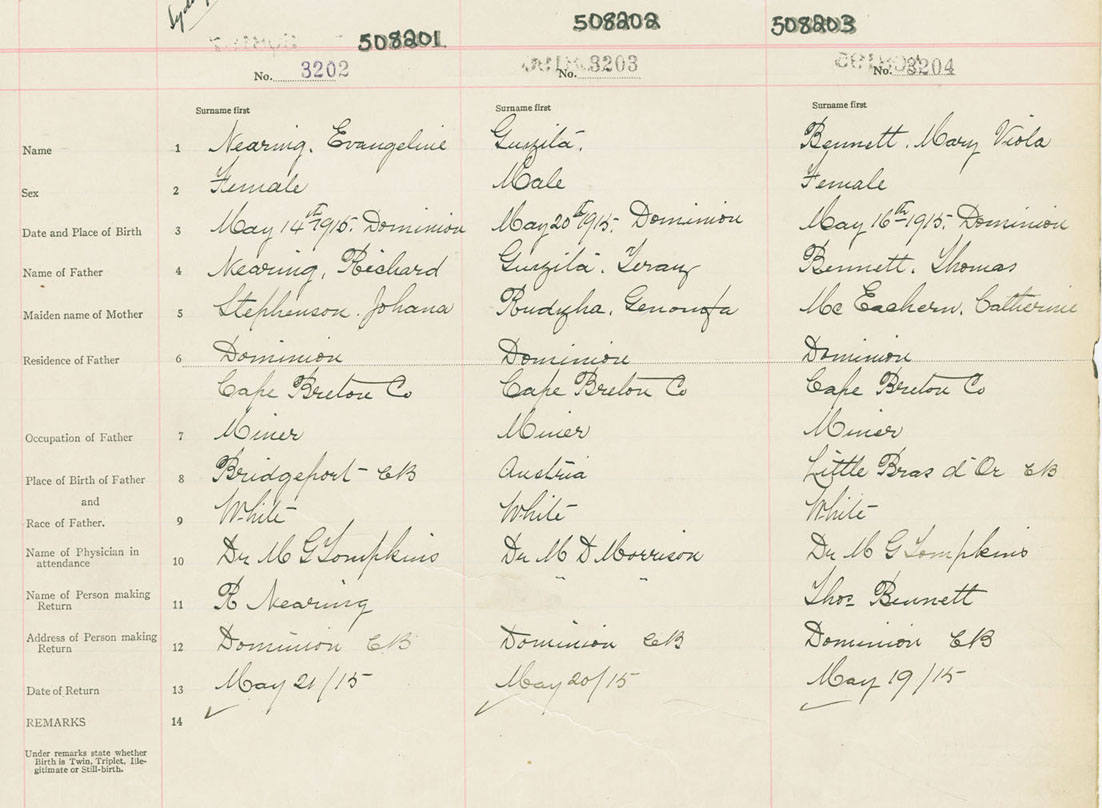 508201 508202 508203
No. 3202 No. 3203 No. 3204
Surname first Surname first Surname first
Name 1 Nearing, Evangeline Guzila, Bennett, Mary Viola
Sex 2 Female Male Female
Date and Place of Birth 3 May 14th 1915, Dominion May 20th 1915, Dominion May 16th 1915, Dominion
Name of Father 4 Nearing, Richard Guzila, Bennett, Thomas
Maiden name of Mother 5 Stephenson, Johana Mc Eachern, Catherine
Residence of Father 6 Dominion Dominion Dominion
Cape Breton Co Cape Breton Co Cape Breton Co
Occupation of Father 7 Miner Miner Miner
Place of Birth of Father 8 Bridgeport CB Austria Little Bras d'Or CB
and
Race of Father. 9 White White White
Name of Physician in
attendance 10 Dr M G Tompkins Dr M D Morrison Dr M G Tompkins
Name of Person making
Return 11 R Nearing " " Thos Bennett
Address of Person making
Return 12 Dominion CB Dominion CB Dominion CB
Date of Return 13 May 21/15 May 20/15 May 19/15
REMARKS 14
Under remarks state whether
Birth is Twin, Triplet, Ille-
gitimate or Still-birth.